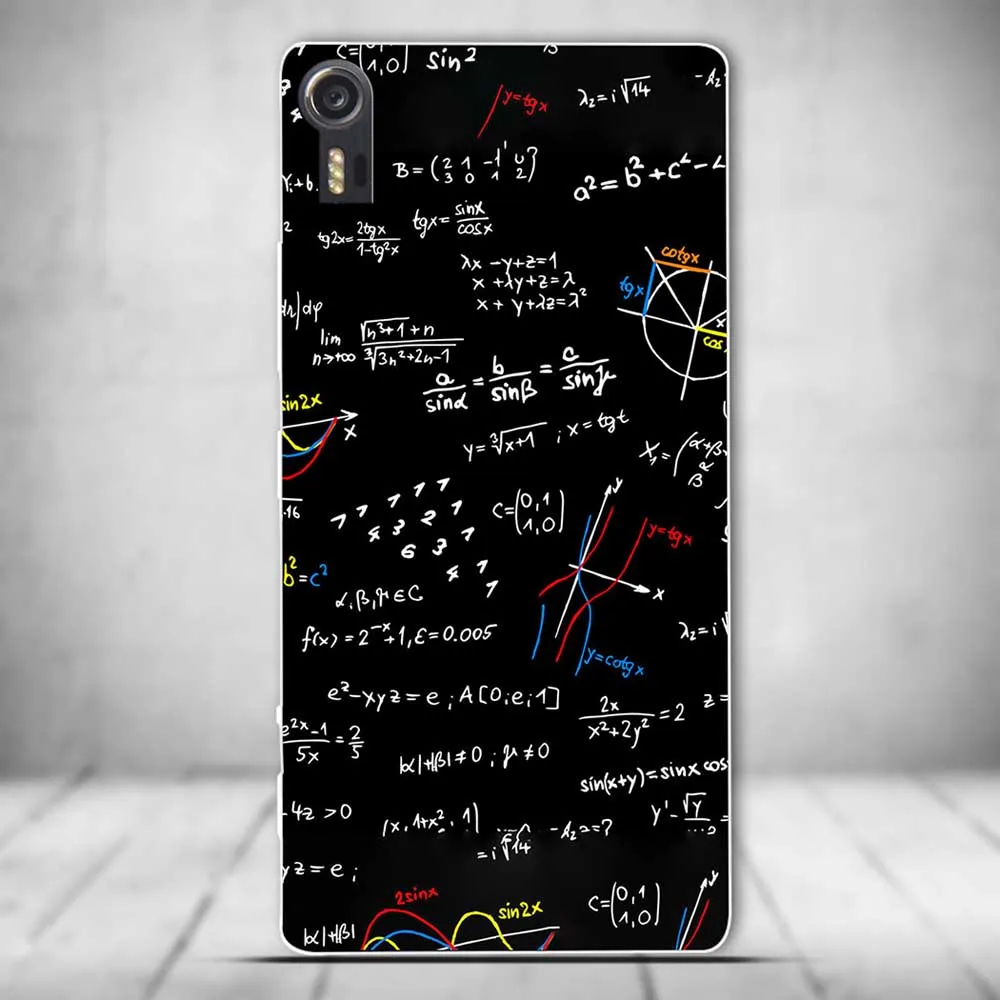 C=(1,0) sin²
y=tgx
λ₂=i√14
B=(2 1 -1 0
3 0 1 2)
a²=b²+c²-
tg2x=2tgx/1-tg²x
tgx=sinx/cosx
λx-y+z=1
x+λy+z=λ
x+y+λz=λ²
cotgx
tgx
x
cos
lim n→+∞ √n³+1+n/³√3n²+2n-1
a/sinα=b/sinβ=c/sinγ
sin2x
x
y=³√x+1 ; x=tgt
X₁=(α+β-
α
β
.16
1 1 1 1 1
4 3 2 1
6 3 1
4 1
1
C=(0,1
1,0)
y
y=tgx
x
y=cotgx
b²=c²
α,β,γ∈C
f(x)=2⁻ˣ+1,ε=0.005
λ₂=i√
eᶻ-xyz=e ; A[0;e;1]
2x/x²+2y²=2
z=
e²ˣ-1/5x=2/5
|α|+|β|≠0 ; γ≠0
sin(x+y)=sinx cos
-4z>0
(x,1+x²,1)
y'-√y
=i√14
yz=e ;
2sinx
sin2x
C=(0,1
1,0)
y
|α|+|β|